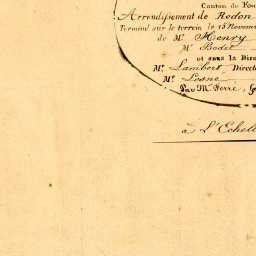 Canton de Fou
Arrondissement de Redon
Terminé sur le terrein le 15 Novem
de Mr. Henry
Mr. Bodet
et sous la Dire
Mr. Lambert Direct
Mr. Lesne
Par Mr. Ferré, G
à L'Echell